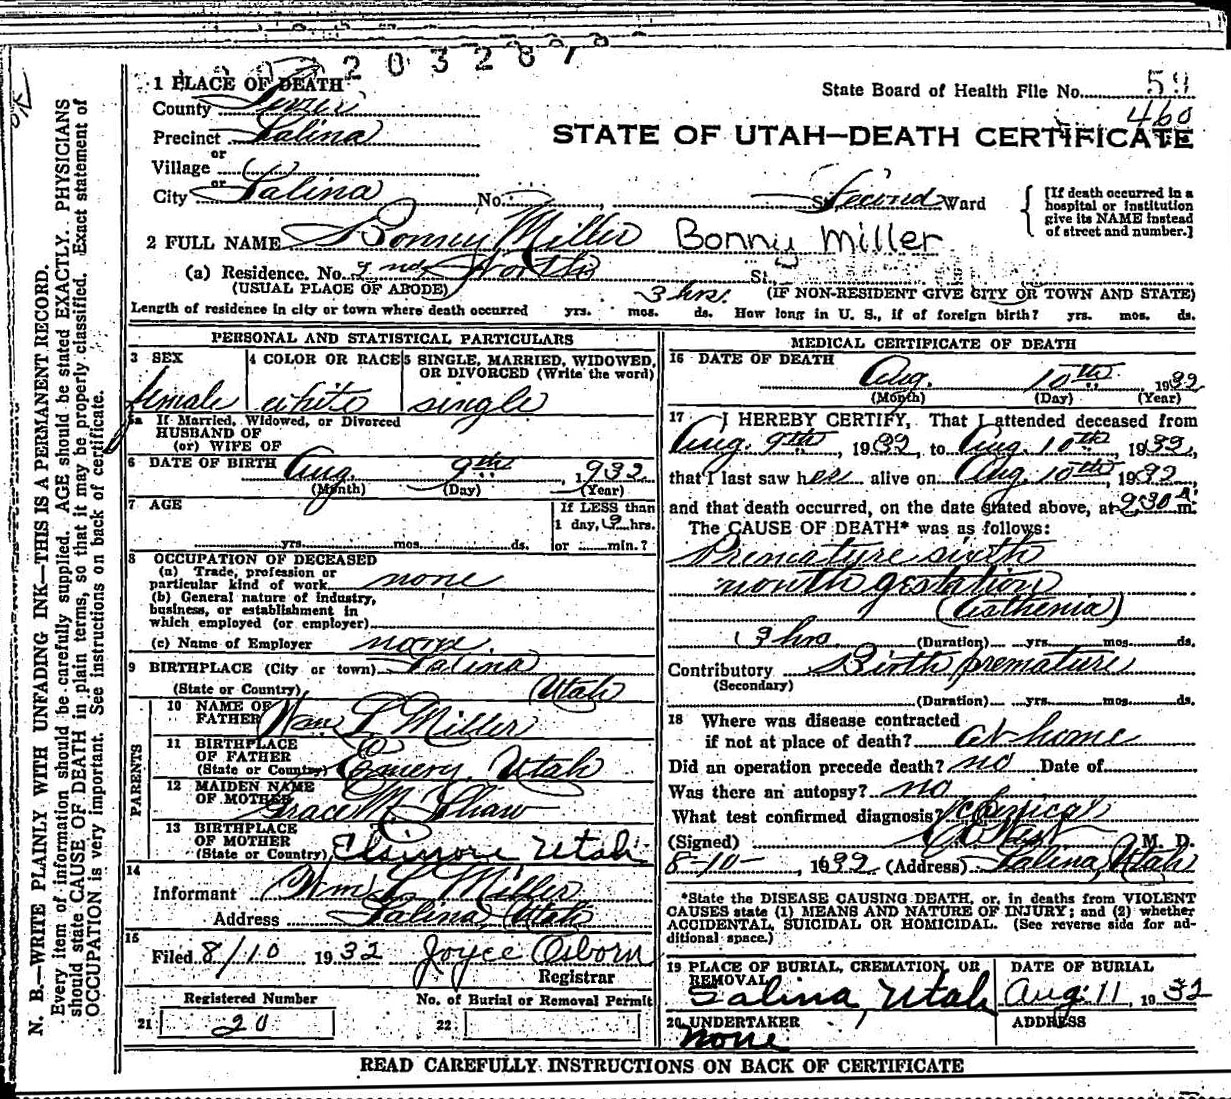 203287
1 PLACE OF DEATH
County Sevier
Precinct Salina
or
Village
or
City Salina No. St. Second Ward
State Board of Health File No. 59
460
STATE OF UTAH—DEATH CERTIFICATE
[If death occurred in a
hospital or institution
give its NAME instead
of street and number.]
2 FULL NAME Bonny Miller Bonny Miller
(a) Residence. No. 2nd North St.
(USUAL PLACE OF ABODE) 3 hrs. (IF NON-RESIDENT GIVE CITY OR TOWN AND STATE)
Length of residence in city or town where death occurred yrs. mos. ds. How long in U. S., if of foreign birth? yrs. mos. ds.
PERSONAL AND STATISTICAL PARTICULARS
3 SEX female
4 COLOR OR RACE white
5 SINGLE, MARRIED, WIDOWED,
OR DIVORCED (Write the word)
single
5a If Married, Widowed, or Divorced
HUSBAND OF
(or) WIFE OF
6 DATE OF BIRTH Aug. 9th, 1932
(Month) (Day) (Year)
7 AGE
yrs. mos. ds.
If LESS than
1 day, hrs.
or min.?
8 OCCUPATION OF DECEASED
(a) Trade, profession or
particular kind of work none
(b) General nature of industry,
business, or establishment in
which employed (or employer)
(c) Name of Employer none
9 BIRTHPLACE (City or town) Salina
(State or Country) Utah
PARENTS
10 NAME OF
FATHER Wm L Miller
11 BIRTHPLACE
OF FATHER
(State or Country) Emery, Utah
12 MAIDEN NAME
OF MOTHER Grace M. Shaw
13 BIRTHPLACE
OF MOTHER
(State or Country) Elsinore Utah
14
Informant Wm L Miller
Address Salina, Utah
15
Filed 8/10 1932 Joyce Osborn
Registrar
Registered Number
21 20
No. of Burial or Removal Permit
22
MEDICAL CERTIFICATE OF DEATH
16 DATE OF DEATH
Aug. 10th 1932
(Month) (Day) (Year)
17 I HEREBY CERTIFY, That I attended deceased from
Aug. 9th, 1932, to Aug. 10th 1932,
that I last saw her alive on Aug 10th 1932,
and that death occurred, on the date stated above, at 9:30 A. m.
The CAUSE OF DEATH* was as follows:
Premature sixth
month gestation
(Asthenia)
3 hrs (Duration) yrs. mos. ds.
Contributory Birth premature
(Secondary)
(Duration) yrs. mos. ds.
18 Where was disease contracted
if not at place of death? at home
Did an operation precede death? no Date of
Was there an autopsy? no
What test confirmed diagnosis? Clinical
(Signed) M. D.
8-10-, 1932 (Address) Salina, Utah
*State the DISEASE CAUSING DEATH, or, in deaths from VIOLENT
CAUSES state (1) MEANS AND NATURE OF INJURY; and (2) whether
ACCIDENTAL, SUICIDAL OR HOMICIDAL. (See reverse side for ad-
ditional space.)
19 PLACE OF BURIAL, CREMATION, OR
REMOVAL
Salina, Utah
DATE OF BURIAL
Aug 11, 1932
20 UNDERTAKER
none
ADDRESS
READ CAREFULLY INSTRUCTIONS ON BACK OF CERTIFICATE
N. B.—WRITE PLAINLY WITH UNFADING INK—THIS IS A PERMANENT RECORD.
Every item of information should be carefully supplied. AGE should be stated EXACTLY. PHYSICIANS
should state CAUSE OF DEATH in plain terms, so that it may be properly classified. Exact statement of
OCCUPATION is very important. See instructions on back of certificate.
OK